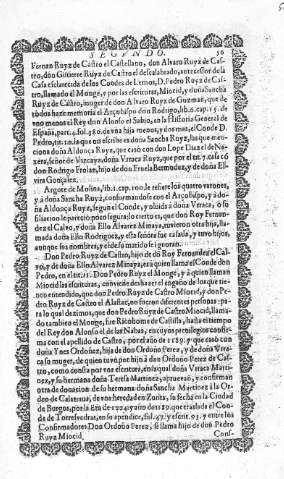 SEGVNDO. 56
Fernan Ruyz de Castro el Castellano, don Alvaro Ruyz de Castro, don Gutierre Ruyz de Castro el descalabrado, antecessor de la
Casa esclarecida de los Condes de Lemos, D. Pedro Ruyz de Castro, llamado el Monge, y por las escrituras, Miocid, y doña Sancha
Ruyz de Castro, muger de don Alvaro Ruyz de Guzman, que de
todos haze memoria el Arçobispo don Rodrigo, lib. 6. cap. 15. de
vno menos el Rey don Alonso el Sabio, en la Historia General de
España, part. 4. fol. 380. de vna hija menos, y dos mas, el Conde D.
Pedro, tit. 11. la que no escribe es doña Sancha Ruyz, las que menciona doña Aldonça Ruyz, que casò con don Lope Diaz el de Naxera, señor de Vizcaya, doña Vrraca Ruyz, que por el tit. 7. casa cõ
don Rodrigo Frolaz, hijo de don Fruela Bermudez, y de doña Elvira Gonçalez.
Argote de Molina, lib. 1. cap. 100. le refiere los quatro varones,
y a doña Sancha Ruyz, conformandose con el Arçobispo, y a doña Aldonça Ruyz, segun el Conde, y olvidò a doña Vrraca, ò su
filiacion le pareciò poco segura; lo cierto es, que don Roy Fernandez el Calvo, y doña Ello Alvarez Minaya, tuvieron otra hija, llamada doña Ello Rodriguez, y esta señora fue casada, y tuvo hijos,
aunque sus nombres, y el de su marido se ignoran.
Don Pedro Ruyz de Castro, hijo de dõ Roy Fernandez el Calvo, y de doña Ello Alvarez Minaya, era quien llama el Conde don
Pedro, en el tit. 11. Don Pedro Ruyz el Monge, y à quien llaman
Miocid las escrituras, conviene deshazer el engaño de los que tienen entendido, que don Pedro Ruyz de Castro Miocid, y don Pedro Ruyz de Castro el Alastar, no fueron diferentes personas: para lo qual dezimos, que don Pedro Ruyz de Castro Miocid, llamado tambien el Monge, fue Ricohome de Castilla, hasta el tiempo
del Rey don Alonso el de las Nabas, en cuyos privilegios confirma con el apellido de Castro, por año de 1189. y que casò con
doña Ordoñez, hija de don Ordoño Perez, y de doña Vrraca su muger, de quien tuvo por hijo à don Ordoño Perez de Castro, como consta por vna escritura, en la qual doña Vrraca Martinez, y su hermana doña Teresa Martinez, aprueban, y confirman
otra donacion de su hermana doña Sancha Martinez à la Orden de Calatrava, de vna heredad en Zorita, su fecha en la Ciudad
de Burgos, por la Era de y año de traslada el Conde de Torresvedras, en su apendice, fol. 47. y escrit. 93. y entre los
Confirmadores Don Ordoño Perez, se llama hijo de don Pedro
Ruyz Miocid, Conf-